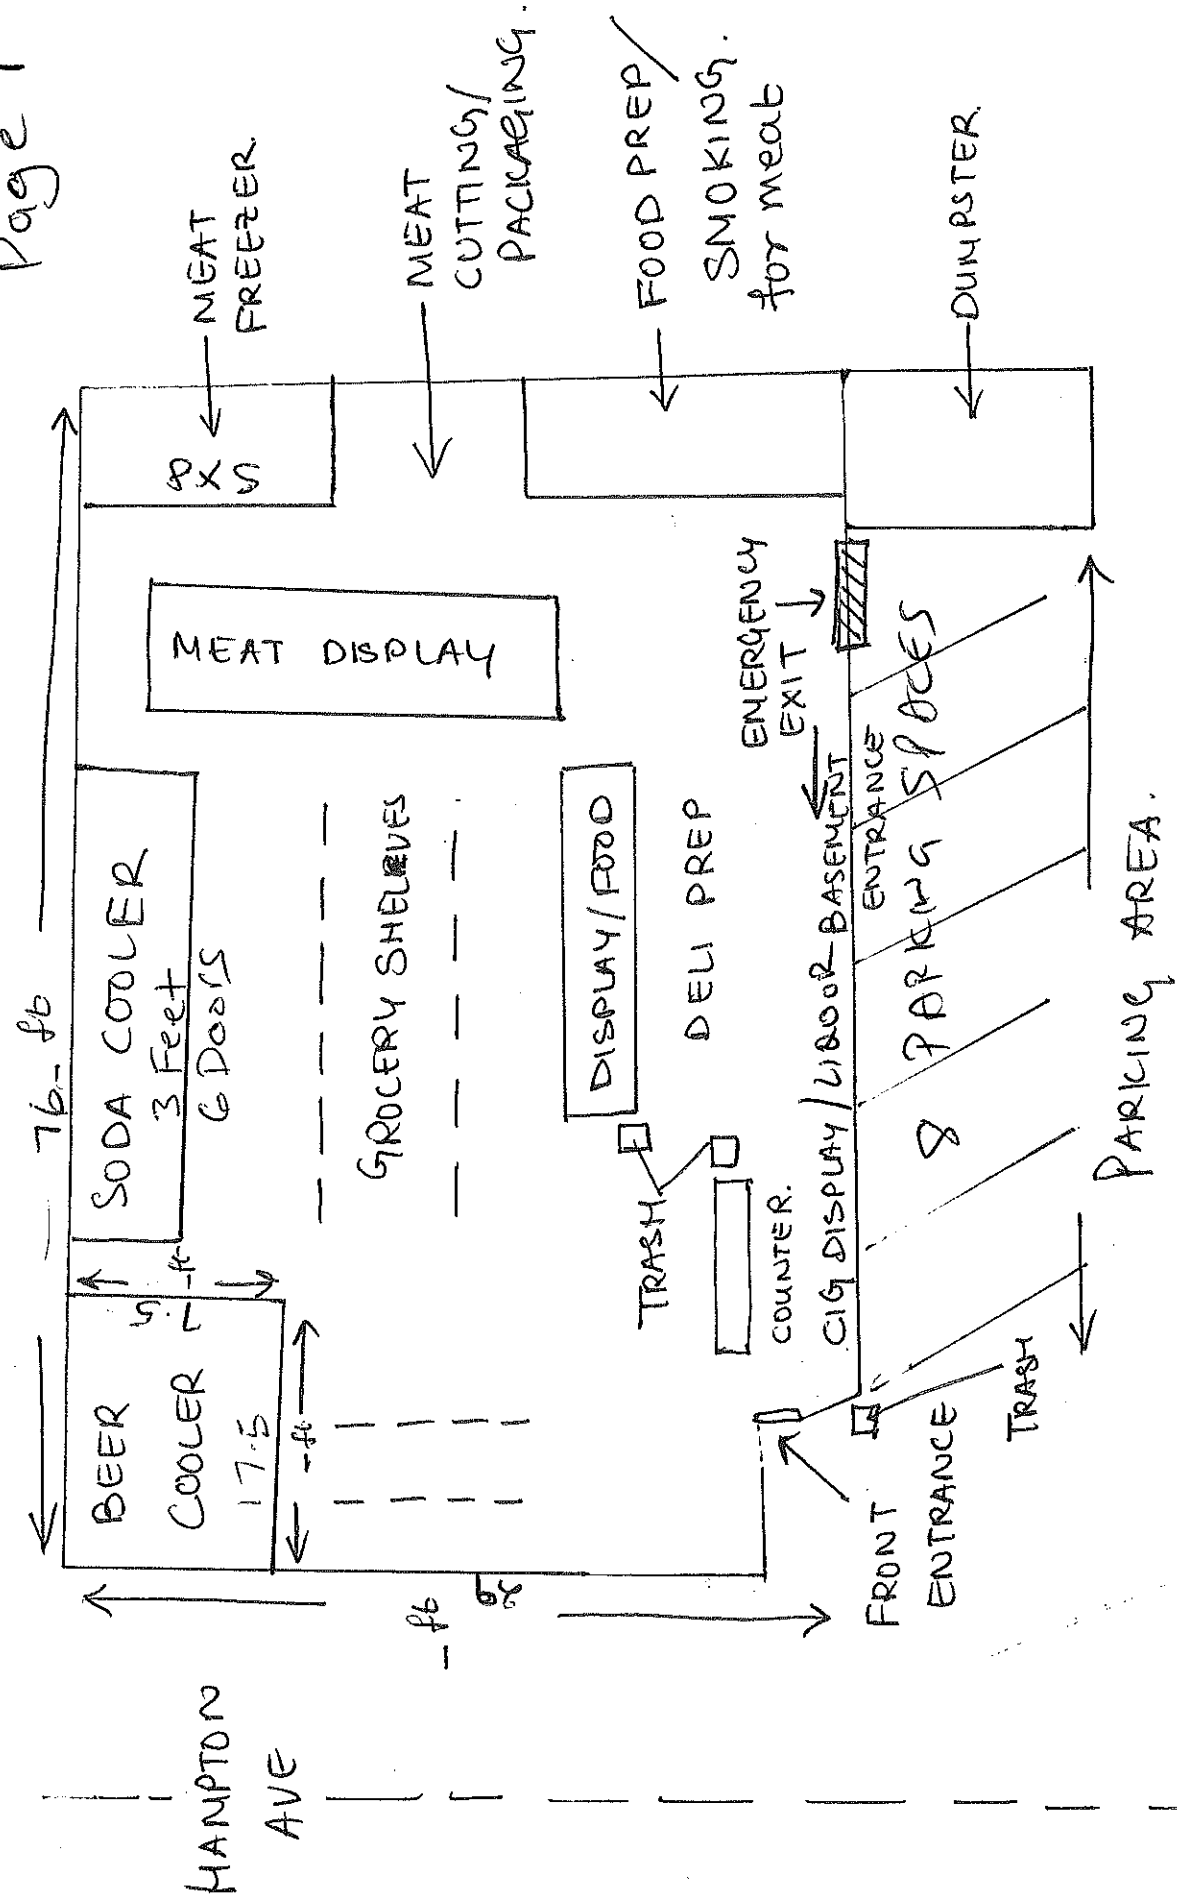 Page 1
MEAT
FREEZER.
MEAT
CUTTING/
PACKAGING.
FOOD PREP/
SMOKING.
for meat
DUMPSTER.
76-ft
8X5
MEAT DISPLAY
SODA COOLER
3 Feet
6 Doors
GROCERY SHELVES
DISPLAY/FOOD
DELI PREP
EMERGENCY
EXIT
BASEMENT
ENTRANCE
CIG DISPLAY/LIQUOR
8 PARKING SPACES
PARKING AREA.
BEER
COOLER
7.5
-ft
17.5
-ft
TRASH
COUNTER.
TRASH
FRONT
ENTRANCE
-ft
HAMPTON
AVE